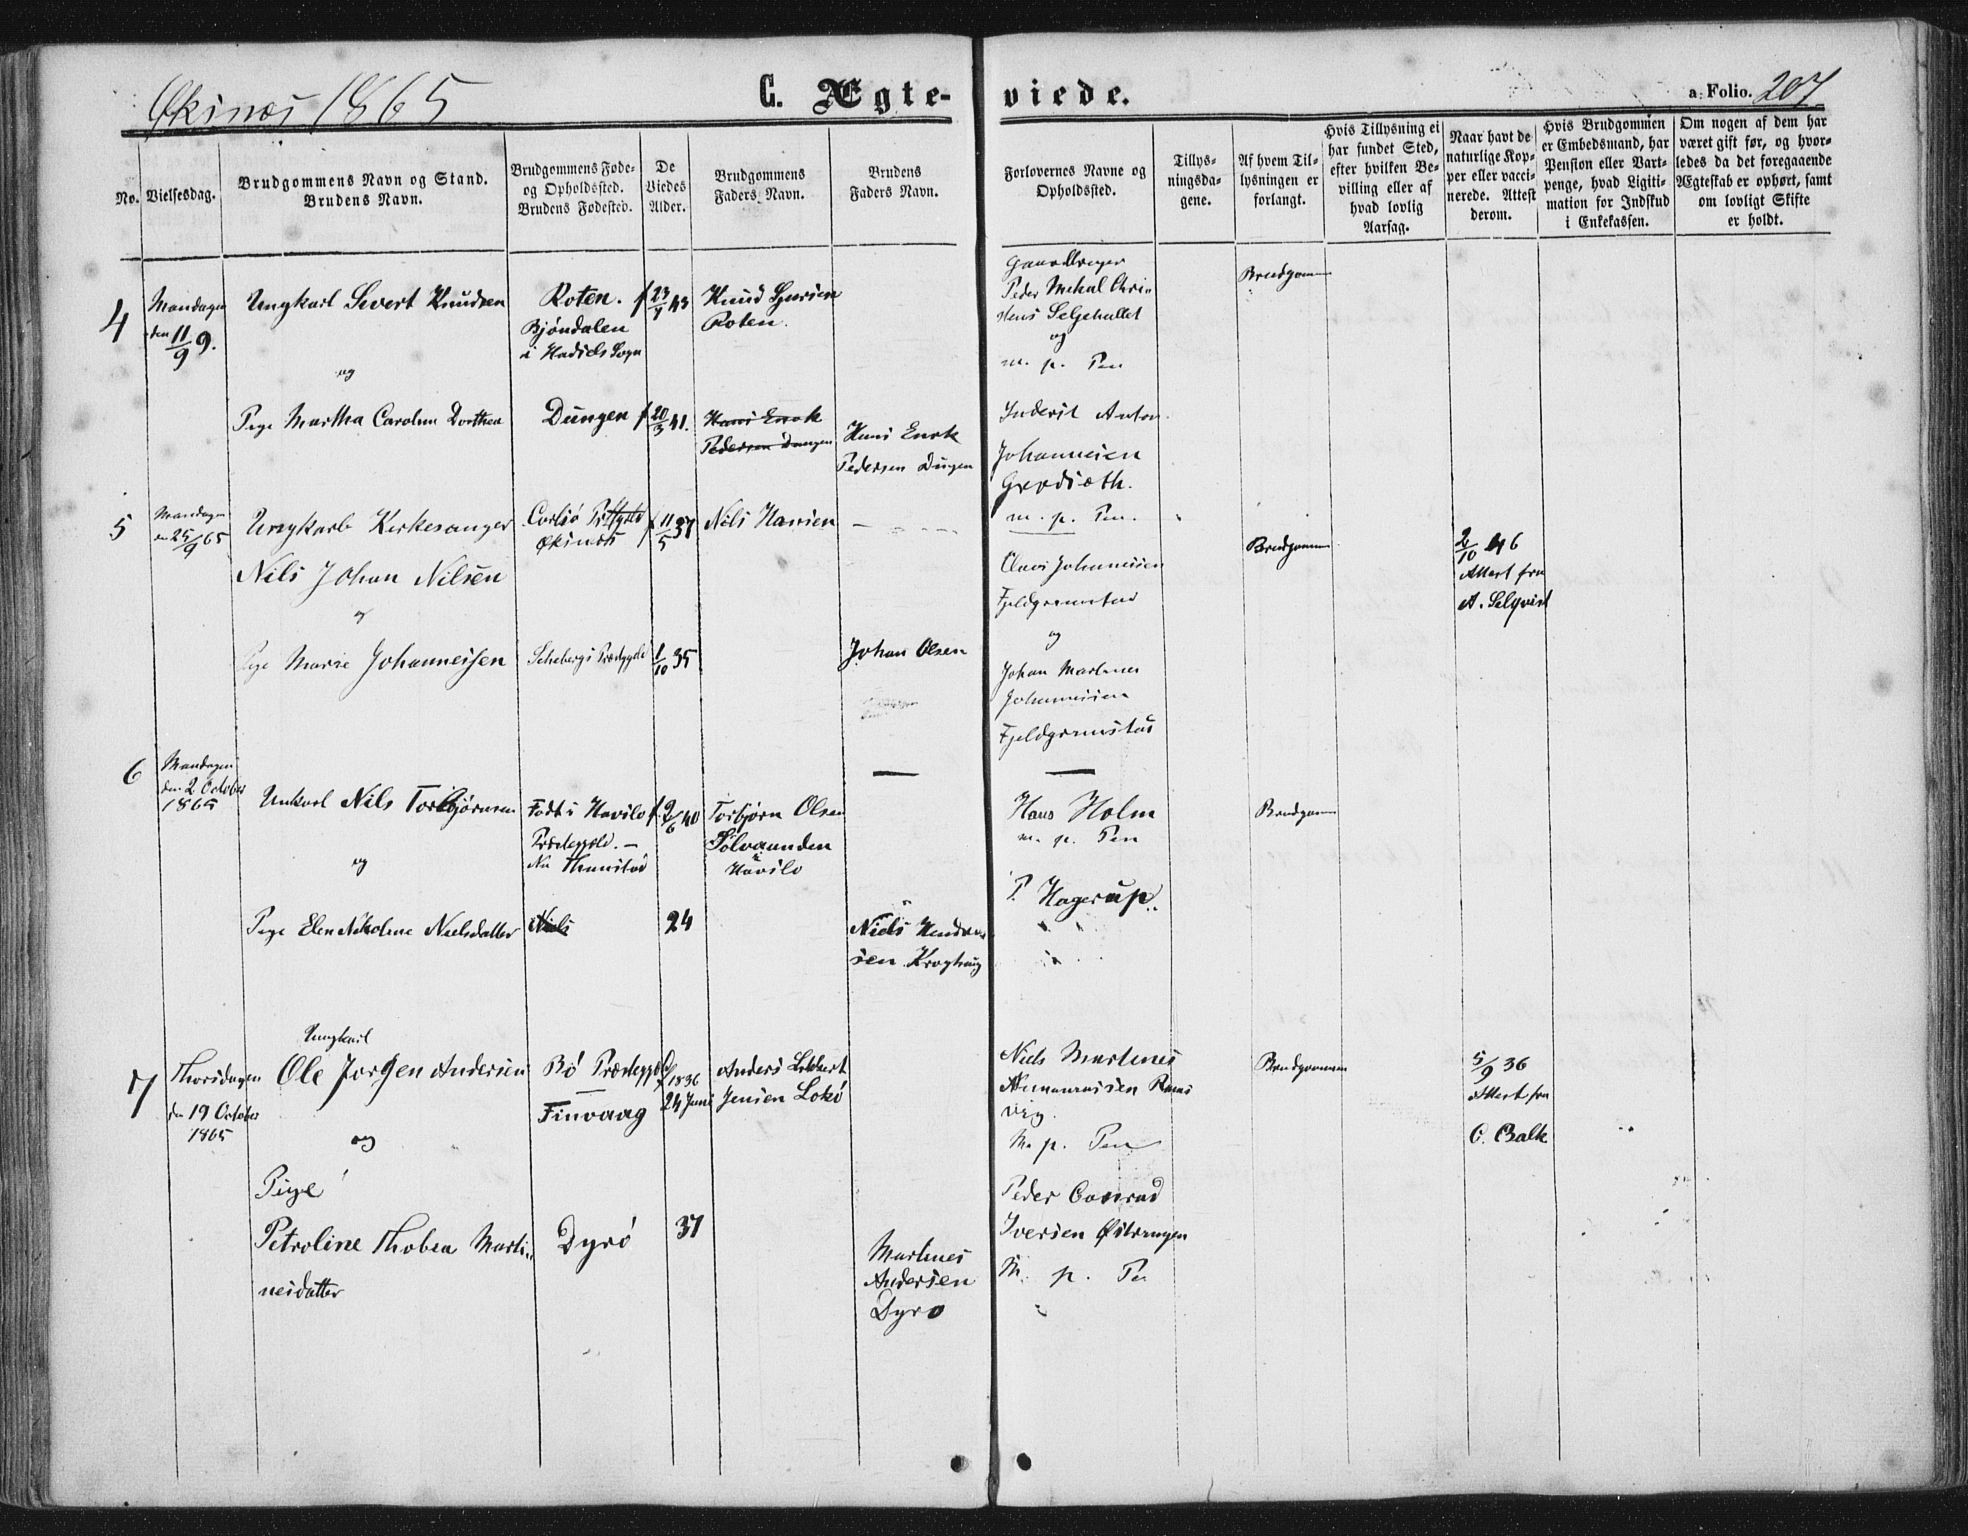 Øksnes 1865
C. Ægte-
viede.
a. Folio. 207
No.
Vielsesdag.
Brudgommens Navn og Stand.
Brudens Navn.
Brudgommens Føde-
og Opholdssted.
Brudens Fødested.
De
Viedes
Alder.
Brudgommens
Faders Navn.
Brudens
Faders Navn.
Forlovernes Navne og
Opholdssted.
Tillys-
ningsda-
gene.
Af hvem Til-
lysningen er
forlangt.
Hvis Tillysning ei
har fundet Sted,
efter hvilken Be-
villing eller af
hvad lovlig
Aarsag.
Naar havt de
naturlige Kop-
per eller vacci-
nerede. Attest
derom.
Hvis Brudgommen
er Embedsmand, har
Pension eller Vart-
penge, hvad Ligiti-
mation for Indskud
i Enkekassen.
Om nogen af dem har
været gift før, og hvor-
ledes da det foregaaende
Ægteskab er ophørt, samt
om lovligt Skifte
er holdt.
4
Mandagen
den 11/9 9.
Ungkarl Severt Knudsen
og
Pige Martha Caroline Dorthea
Roten.
Bjöndalen
i Hadsels Sogn
Dungen
f 23/7 43
f 20/3 41.
Knud
Roten.
Hans Enok
Pedersen Dungen
Hans Enok
Pedersen Dungen
Peder Mekal Chri-
og
m. p. Pen
Anton
Johannesen
m. p. Pen.
Brudgommen
5
Mandagen
den 25/9 65
Ungkarl Kirkesanger
Nils Johan Nilsen
og
Pige Marie Johannessen
Øksnes
f 11/5 37
1/10 35
Nils Hansen
Johan Olsen
Johannesen
og
Johan Martines
Johannesen
Brudgommen
2/10 46
Attest fra
A. Selqvist
6
Mandagen
den 2 October
1865
Unkarl Nils Torbjørnsen
og
Pige Elen Nikoline Nielsdatter
Født i Havslo
Præstegjeld. -
Nu
Niels
f. 2/6 40
24
Torbjørn Olsen
Havslo
Niels
sen
Hans Holm
m. p. Pen
P. Hagerup
Brudgommen
7
Thorsdagen
den 19 October
1865
Ungkarl
Ole Jørgen Andersen
og
Pige
Petroline Thobea Marti-
nesdatter
Bö Præstegjeld
Finvaag
Dyrö
f 1836
24 Juni
37
Anders
Jensen Lokö
Martines
Andersen
Dyrö
Niels Martines
M. p. Pen
Peder Conrad
Iversen
M. p. Pe
Brudgommen
5/9 36
Attest fra
C. Balk